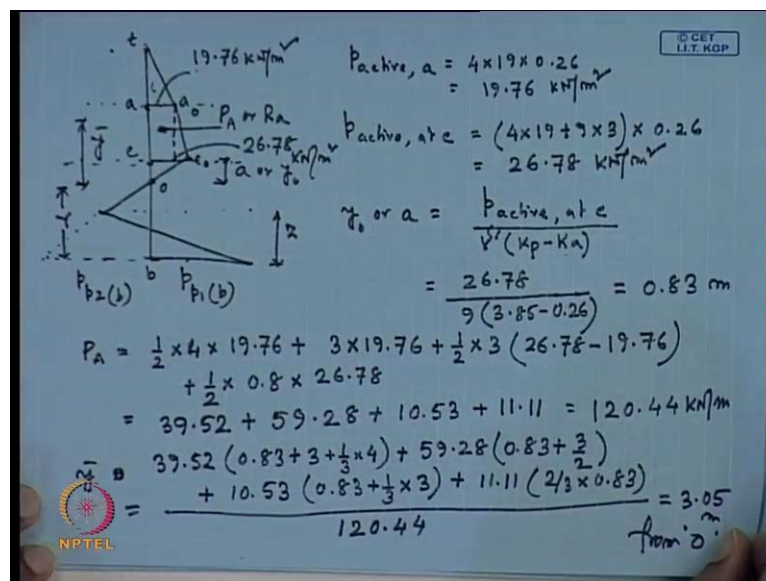 t
19.76 kN/m²
© CET
I.I.T. KGP
a
a₀
P_A or R_a
26.78 kN/m²
ȳ
e
e₀
a or y₀
o
Y
z
b
P_p2(b)
P_p1(b)
P_active, a = 4×19×0.26
= 19.76 kN/m²
P_active, at e = (4×19+9×3)×0.26
= 26.78 kN/m²
y₀ or a = P_active, at e / γ'(Kp-Ka)
= 26.78 / 9(3.85-0.26) = 0.83 m
P_A = 1/2×4×19.76 + 3×19.76 + 1/2×3(26.78-19.76)
+ 1/2×0.8×26.78
= 39.52 + 59.28 + 10.53 + 11.11 = 120.44 kN/m
39.52(0.83+3+1/3×4) + 59.28(0.83+3/2)
+ 10.53(0.83+1/3×3) + 11.11(2/3×0.83)
= / 120.44 = 3.05 m
from 'o'.
NPTEL